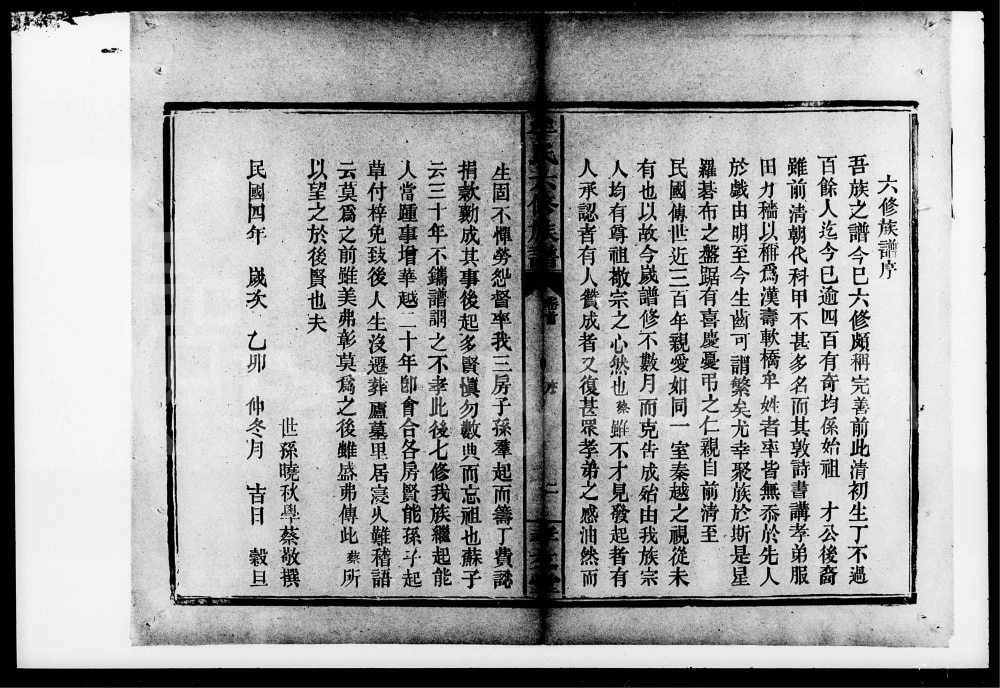 六修族譜序
吾族之譜今已六修頗稱完善前此清初生丁不過
百餘人迄今已逾四百有奇均係始祖　才公後裔
雖前清朝代科甲不甚多名而其敦詩書講孝弟服
田力穡以稱爲漢壽軟橋牟姓者率皆無忝於先人
於戲由明至今生齒可謂繁矣尤幸聚族於斯是星
羅碁布之盤踞有喜慶憂弔之仁親自前清至
民國傳世近三百年親愛如同一室秦越之視從未
有也以故今歲譜修不數月而克告成始由我族宗
人均有尊祖敬宗之心然也蔡雖不才見發起者有
人承認者有人贊成者又復甚眾孝弟之感油然而
牟氏六修族譜　卷首　序　二
生固不憚勞怨督率我三房子孫羣起而籌丁費認
捐欵勷成其事後起多賢愼勿數典而忘祖也蘇子
云三十年不鑴譜謂之不孝此後七修我族繼起能
人當踵事增華越二十年卽會合各房賢能孫子起
草付梓免致後人生沒遷葬廬墓里居寖久難稽語
云莫爲之前雖美弗彰莫爲之後雖盛弗傳此蔡所
以望之於後賢也夫
世孫曉秋學蔡敬撰
民國四年　歲次　乙卯　仲冬月　吉日　穀旦